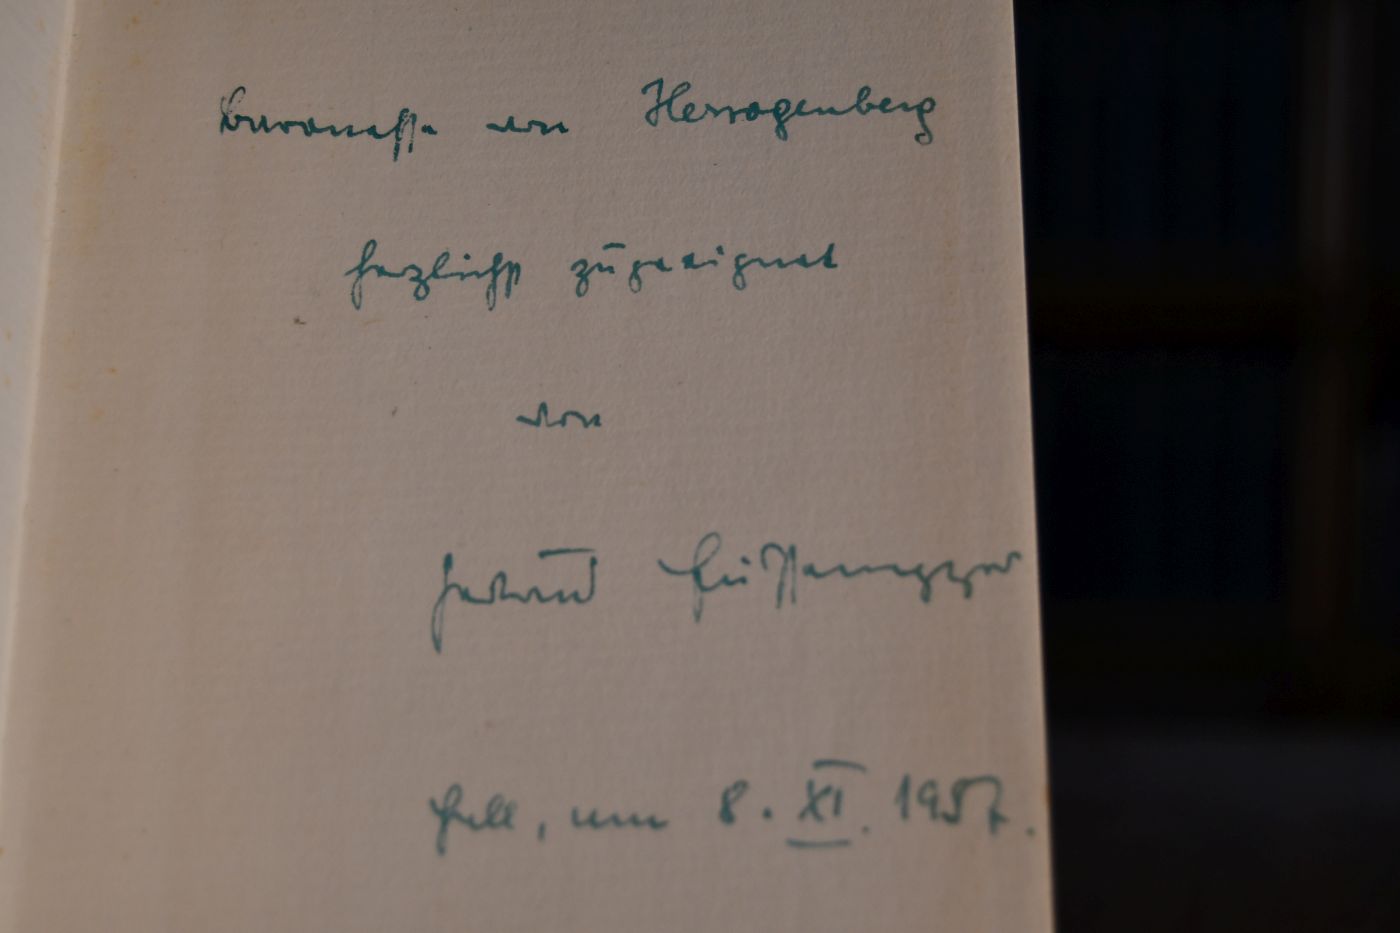 Baronesse von Herzogenberg
herzlichst zugeeignet
von
Hall, am 8. XI. 1957.